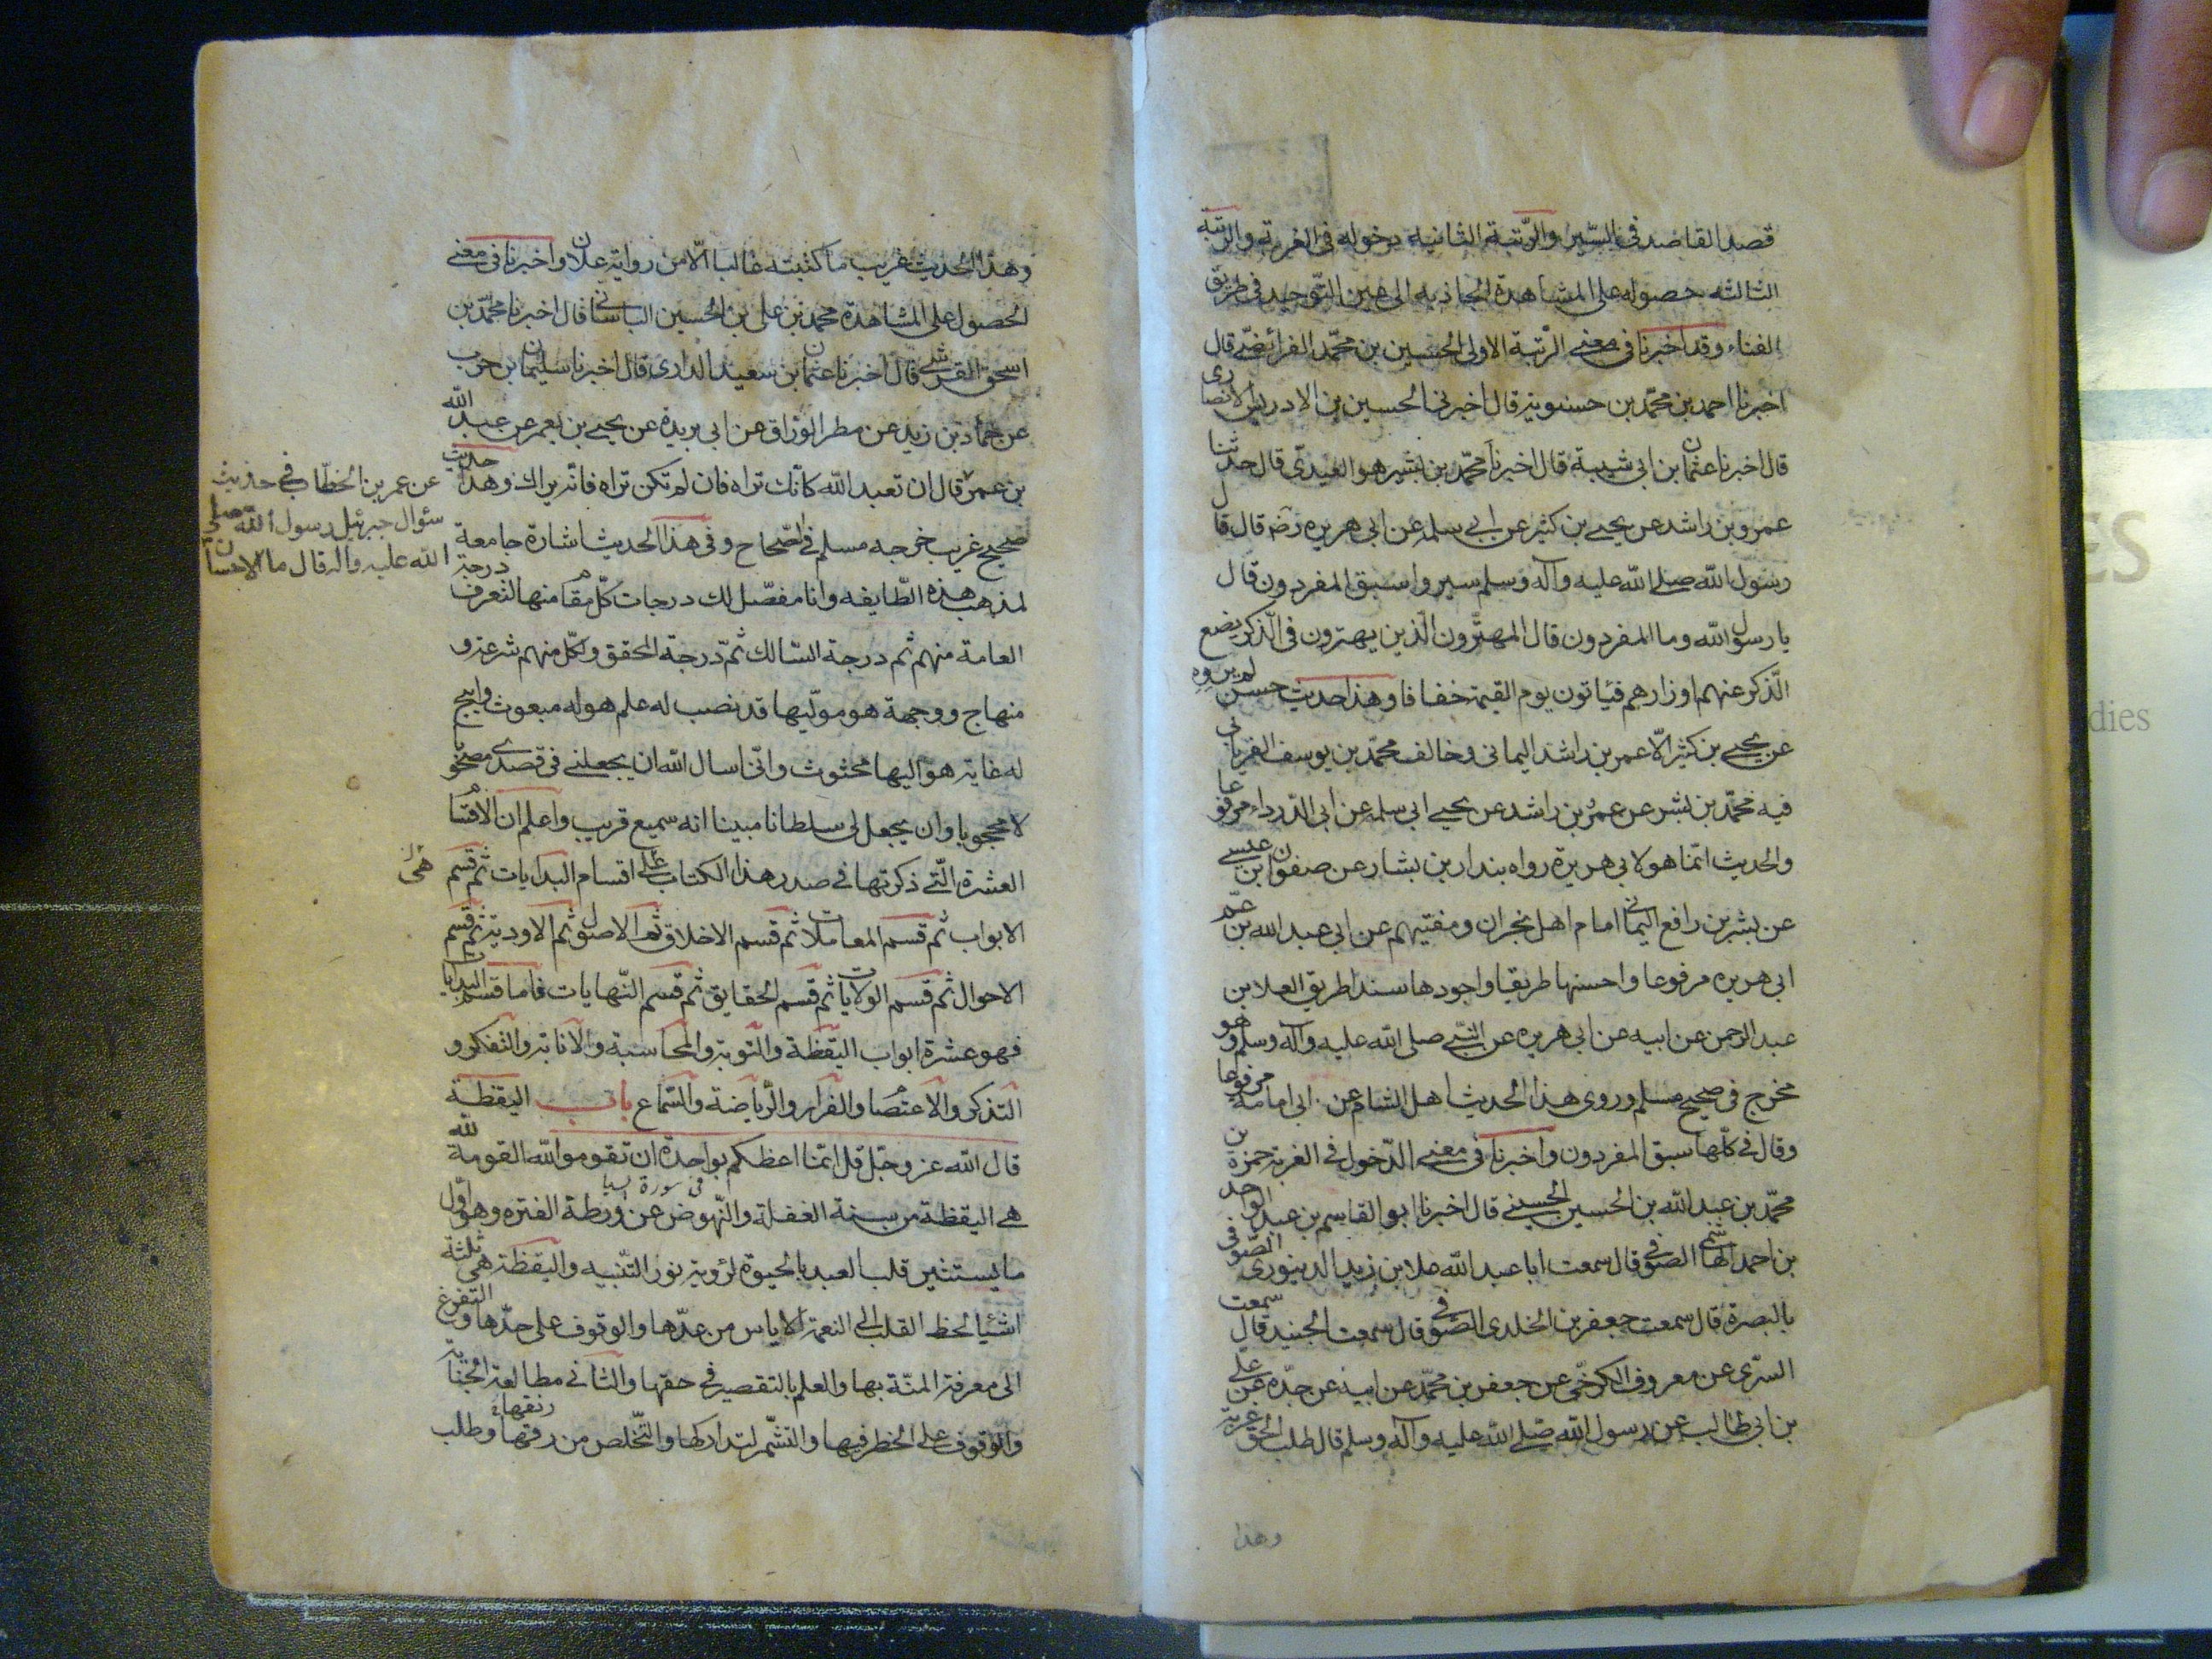 قصد القاصد فى السّير والرّتبة الثانيه دخوله فى الغربة والرتبة
الثالثه حصوله على المشاهدة الجاذبه الى عين التّوحيد فى طريق
الفناء وقد اخبرنا فى معنى الرّتبة الاولى الحسين بن محمّد الفرائضى قال
اخبرنا احمد بن محمّد بن حسنويه قال اخبرنى الحسين بن الادريس الانصارى
قال اخبرنا عثمان بن ابى شيبة قال اخبرنا محمّد بن بشير هو العبدى قال حدثنا
عمرو بن راشد عن يحيى بن كثير عن ابى سلمه عن ابى هريره رضه قال قال
رسول الله صلى الله عليه وآله وسلم سيروا سبق المفردون قال
يا رسول الله وما المفردون قال المهتزّون الّذين يهتزون فى الذّكر يضع
الّذكر عنهم اوزارهم فياتون يوم القيمة خفافا وهذا حديث حسن لم يروه
عن يحيى بن كثير الّا عمر بن راشد اليمانى وخالف محمّد بن يوسف الفريابى
فيه محمّد بن بشر عن عمر بن راشد عن يحيى ابى سلمه عن ابى الدّرداء مرفوعا
والحديث انّما هو لابى هريرة رواه بندار بن بشار عن صفوان بن عيسى
عن بشر بن رافع اليمانى امام اهل نجران ومفتيهم عن ابى عبد الله بن عم
ابى هريره مرفوعا واحسنها طريقا واجودها سندا طريق العلا بن
عبد الرحمن عن ابيه عن ابى هريره عن النّبى صلى الله عليه وآله وسلم وهو
مخرج فى صحيح مسلم وروى هذا الحديث اهل الشام عن ابى امامة مرفوعا
وقال فى كلّها سبق المفردون واخبرنا فى معنى الدّخول فى الغربة حمزة بن
محمّد بن عبد الله بن الحسين الحسينى قال اخبرنا ابو القاسم بن عبد الواحد
بن احمد الهاشمى الصّوفى قال سمعت ابا عبد الله علا بن زيد الدينورى الصّوفى
بالبصرة قال سمعت جعفر بن الخلدى الصّوفى قال سمعت الجنيد قال سمعت
السّرى عن معروف الكرخى عن جعفر بن محمّد عن ابيه عن جدّه عن على
بن ابى طالب عن رسول الله صلى الله عليه وآله وسلم قال طلب الحق غربة
وهذا
وهذا الحديث غريب ما كتبته غالبا الّا من رواية علان واخبرنا فى معنى
الحصول على المشاهدة محمد بن على بن الحسين الباسانى قال اخبرنا محمّد بن
اسحق القرشى قال اخبرنا عثمان بن سعيد الدارى قال اخبرنا سليمان بن حرب
عن حمّاد بن زيد عن مطر الوراق عن ابى بريدة عن يحيى بن يعمر عن عبد الله
بن عمر قال ان تعبد الله كانّك تراه فان لم تكن تراه فانّه يراك وهذا حديث
عن عمر بن الخطّاب فى حديث
سئوال جبرئيل رسول الله صلى
الله عليه وآله قال ما الاحسان
صحيح غريب خرجه مسلم فى الصّحاح وفى هذا الحديث اشارة جامعة
لمذهب هذه الطّايفه وانا مفصّل لك درجات كلّ مقام منها لتعرف درجة
العامة منهم ثم درجة السّالك ثمّ درجة المحقق ولكلّ منهم شرعة و
منهاج ووجهة هو مولّيها قد نصب له علم هو له مبعوث واتيح
له غاية هو اليها محثوث وانّى اسال الله ان يجعلنى فى قصدى مصحوبا
لا محجوبا وان يجعل لى سلطانا مبينا انه سميع قريب واعلم ان الاقسام
العشرة الّتى ذكرتها فى صدر هذا الكتاب على اقسام البدايات ثم قسم
الابواب ثم قسم المعاملات ثم قسم الاخلاق ثم الاصول ثم الاودية ثم قسم
الاحوال ثم قسم الولايات ثم قسم الحقايق ثم قسم النّهايات فاما قسم البدايات
فهو عشرة ابواب اليقظة والتّوبة والمحاسبة والانابة والتفكر و
التذكر والاعتصام والفرار والرّياضة والسّماع باب اليقظة
قال الله عز وجل قل انّما اعظكم بواحدة ان تقوموا لله القومة لله
فى سورة سبا
هى اليقظة من سنة الغفلة والنّهوض عن ورطة الفتره وهو اوّل
ما يستنير قلب العبد بالحيوة لرؤية نور التّنبيه واليقظة هى ثلثة
اشئيا لحظ القلب الى النعمة الاياس من عدّها والوقوف على حدّها والتفرغ
الى معرفة المنّة بها والعلم بالتقصير فى حقها والثانى مطالعة الجناية
والوقوف على الخطر فيها والتشّمر لتداركها والتّخلص من رقها وطلب